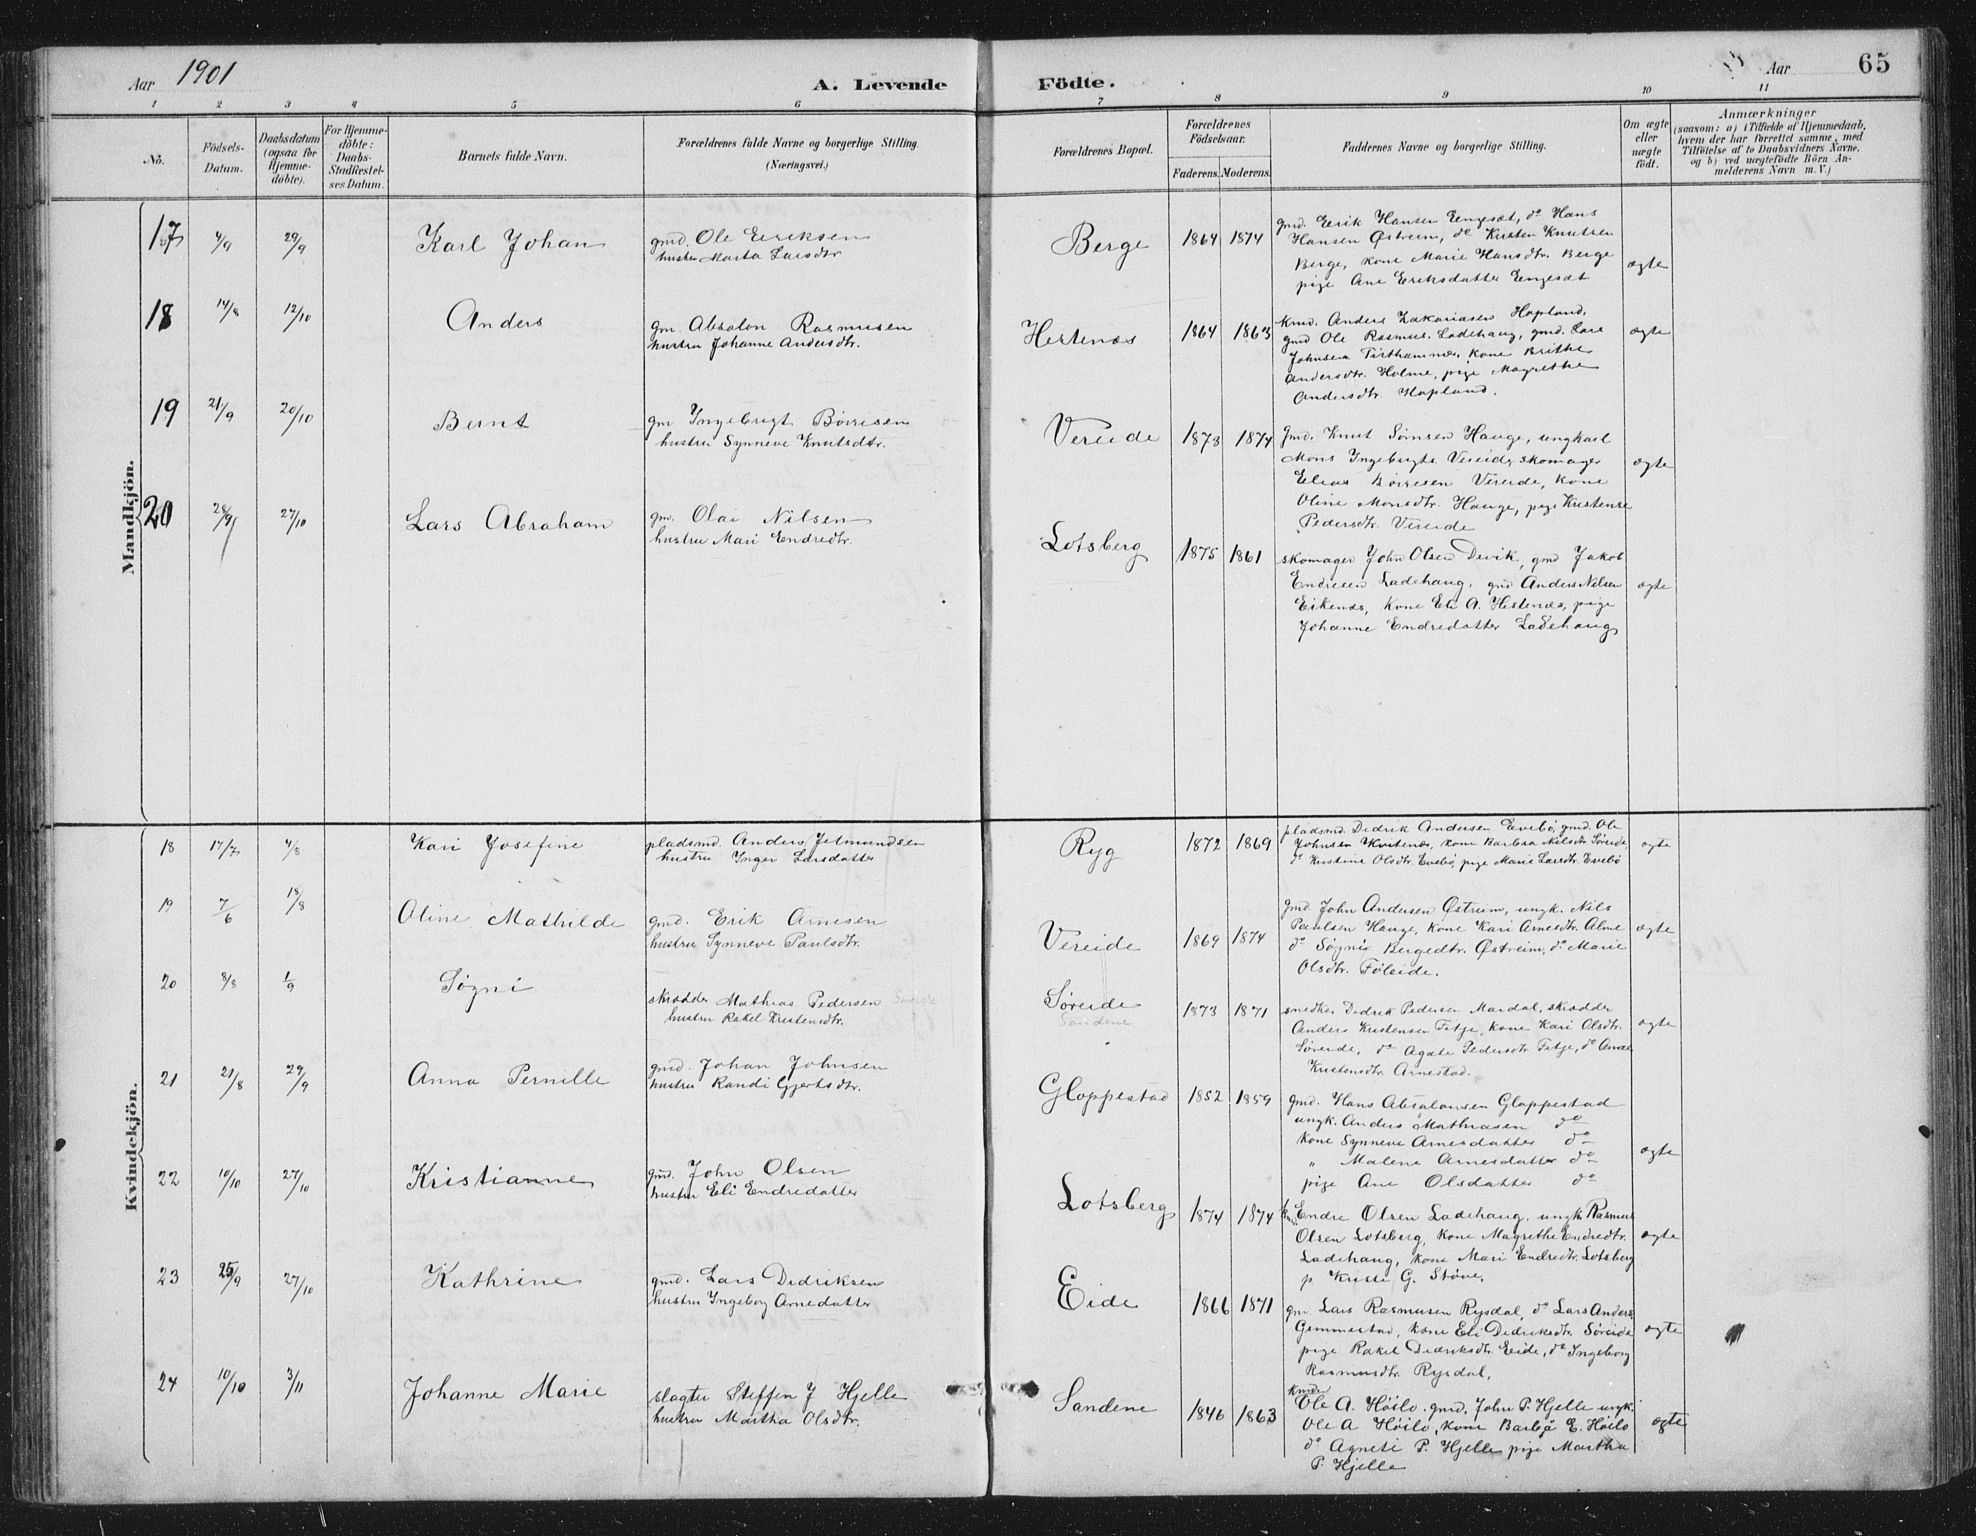 Aar 1901
A. Levende Födte.
Aar 65
1 2 3 4 5 6 7 8 9 10 11
No.
Födsels-Datum.
Daabsdatum (ogsaa for Hjemme-döbte).
For Hjemme-döbte: Daabs-Stadfæstel-ses Datum.
Barnets fulde Navn.
Forældrenes fulde Navne og borgerlige Stilling.
(Næringsvei.)
Forældrenes Bopæl.
Forældrenes Födselsaar.
Faderens. Moderens.
Faddernes Navne og borgerlige Stilling.
Om ægte eller uægte födt.
Anmærkninger
(saasom: a) i Tilfælde af Hjemmedaab,
hvem der har forrettet samme, med
Tilföielse af to Daabsvidners Navne,
og b) ved uægtefödte Börn An-
melderens Navn m. V.)
Mandkjön.
17 4/9 29/9 Karl Johan
gmd. Ole Eriksen
hustru Marta Larsdtr
Berge 1864 1874
gmd. Erik Hansen Engesæt, do Hans
Hansen Østreim, do Kristen Knutsen
Berge, kone Marie Hansdtr. Berge
pige Ane Eriksdatter Engesæt
ægte
18 14/8 12/10 Anders
gm. Absalon Rasmusen
hustru Johanne Andersdtr.
Hestenæs 1864 1863
kmd. Anders Zakariasen Hopland,
gmd Ole Rasmus. Ladehaug, gmd. Lars
Johnsen Tisthammer, kone Brithe
Andersdtr. Holme, pige Magrethe
Andersdtr. Hopland.
ægte
19 21/9 20/10 Bernt
gm Ingebrigt Børresen
hustru Synneve Knutsdtr.
Vereide 1873 1874
gmd. Knut Simsen Hauge, ungkarl
Mons Ingebrigts. Vereide, skomager
Elias Børresen Vereide, kone
Oline Monsdtr. Hauge, pige Kristense
Pedersdtr. Vereide
ægte
20 28/9 27/10 Lars Abraham
gm. Olai Nilsen
hustru Mari Endredtr.
Lotsberg 1875 1861
skomager John Olsen Devik, gmd Jakob
Endresen Ladehaug, gmd Anders Nilsen
Eikenæs, kone Eli A. Hestenæs, pige
Johanne Endredatter Ladehaug
ægte
Kvindekjön.
18 17/7 4/8 Kari Josefine
pladsmd. Anders Jetmundsen
hustru Inger Larsdatter
Ryg 1872 1869
pladsmd. Didrik Andersen Evebø, gmd. Ole
Johnsen Kvitenæs, kone Barbra Nilsdtr Søreide
do Kristine Olsdtr. Evebø, pige Marie Larsdtr. Evebø
ægte
19 7/6 18/8 Oline Mathilde
gmd. Erik Arnesen
hustru Synneve Paulsdtr.
Vereide 1869 1874
gmd. John Andersen Østreim, ungk. Nils
Paulsen Hauge, kone Kari Arnesdtr. Alme
do Søgni Bergedtr. Østreim, do Marie
Olsdtr. Føleide.
ægte
20 8/8 1/9 Søgni
skrædder Mathias Pedersen Søreide
hustru Rakel Kristensdtr.
Søreide
Sandene
1873 1871
snedker Didrik Pedersen Mardal, skrædder
Anders Kristensen Fitje, kone Kari Olsdtr.
Søreide, do Agate Pedersdtr Fitje, do Anne
Kristensdtr. Arnestad.
ægte
21 21/8 29/9 Anna Pernille
gmd. Johan Johnsen
hustru Randi Gjertsdtr.
Gloppestad 1852 1859
gmd. Hans Absalonsen Gloppestad
ungk. Anders Mathiasen do
kone Synneve Arnesdatter do
" Malene Arnesdatter do
pige Ane Olsdatter do
ægte
22 10/10 27/10 Kristianne
gmd. John Olsen
hustru Eli Endredatter
Lotsberg 1874 1874
Endre Olsen Ladehaug, ungk. Rasmus
Olsen Lotsberg, kone Magrethe Endredtr.
Ladehaug, kone Mari Endredtr. Lotsberg
p. Kriste G. Støve.
ægte
23 25/9 27/10 Kathrine
gmd. Lars Didriksen
hustru Ingeborg Arnedatter
Eide 1866 1871
gm. Lars Rasmusen Rysdal, do Lars Anders
Gemmestad, kone Eli Didriksdtr. Søreide
pige Rakel Didriksdtr. Eide, do Ingeborg
Rasmusdtr. Rysdal.
ægte
24 10/10 3/11 Johanne Marie
slagter Steffen J Hjelle
hustru Martha Olsdtr.
Sandene 1846 1863
kmdr
Ole A. Høilo. gmd. John P. Hjelle ungk.
Ole A Høilo, kone Barbra E. Høilo
do Agnete P. Hjelle pige Martha
P. Hjelle
ægte